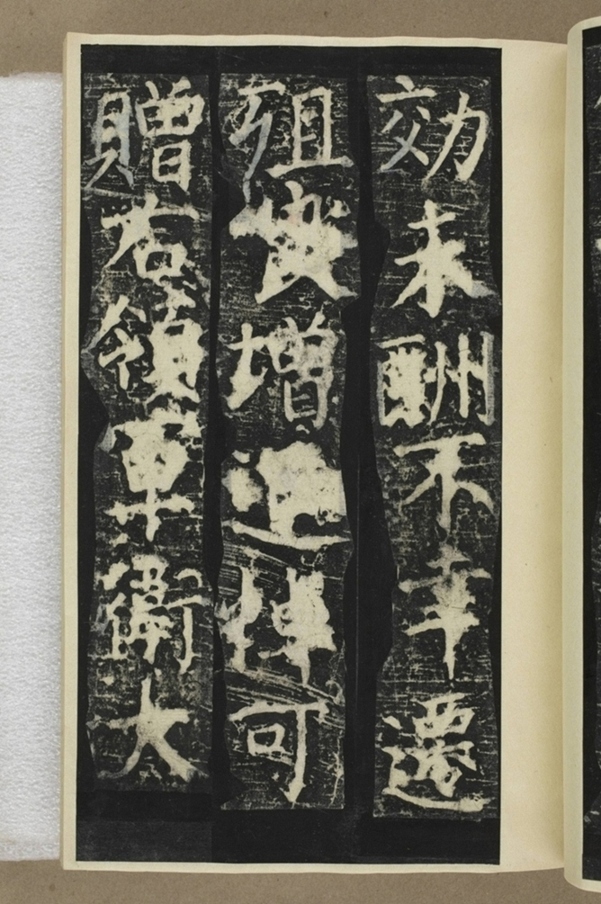 効未酬不幸遷
殂良增追悼可
贈右領軍衛大